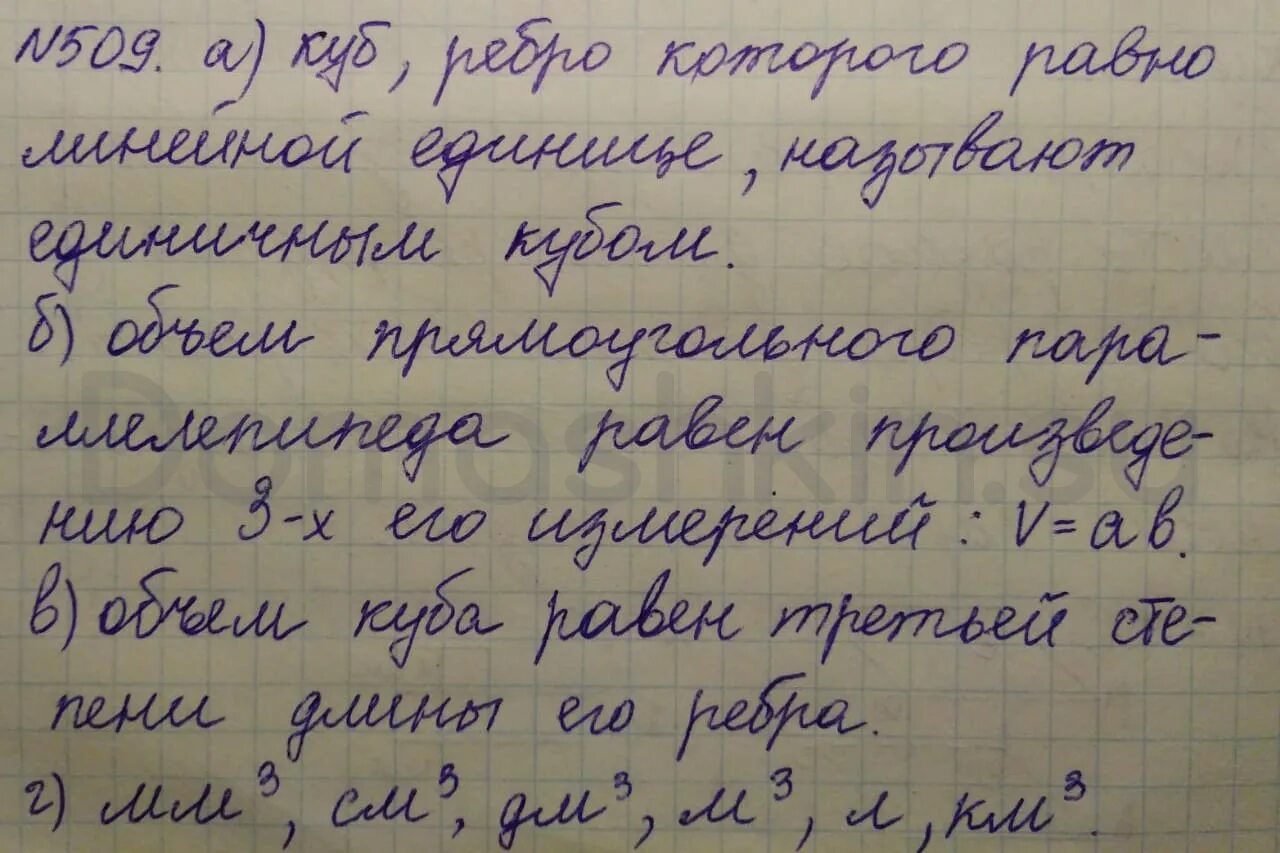 №509. а) куб, ребро которого равно
линейной единице, называют
единичным кубом.
б) объем прямоугольного пара-
ллелепипеда равен произведе-
нию 3-х его измерений: V=ав.
в) объем куба равен третьей сте-
пени длины его ребра.
г) мм³, см³, дм³, м³, л, км³.
Domashkin.sa